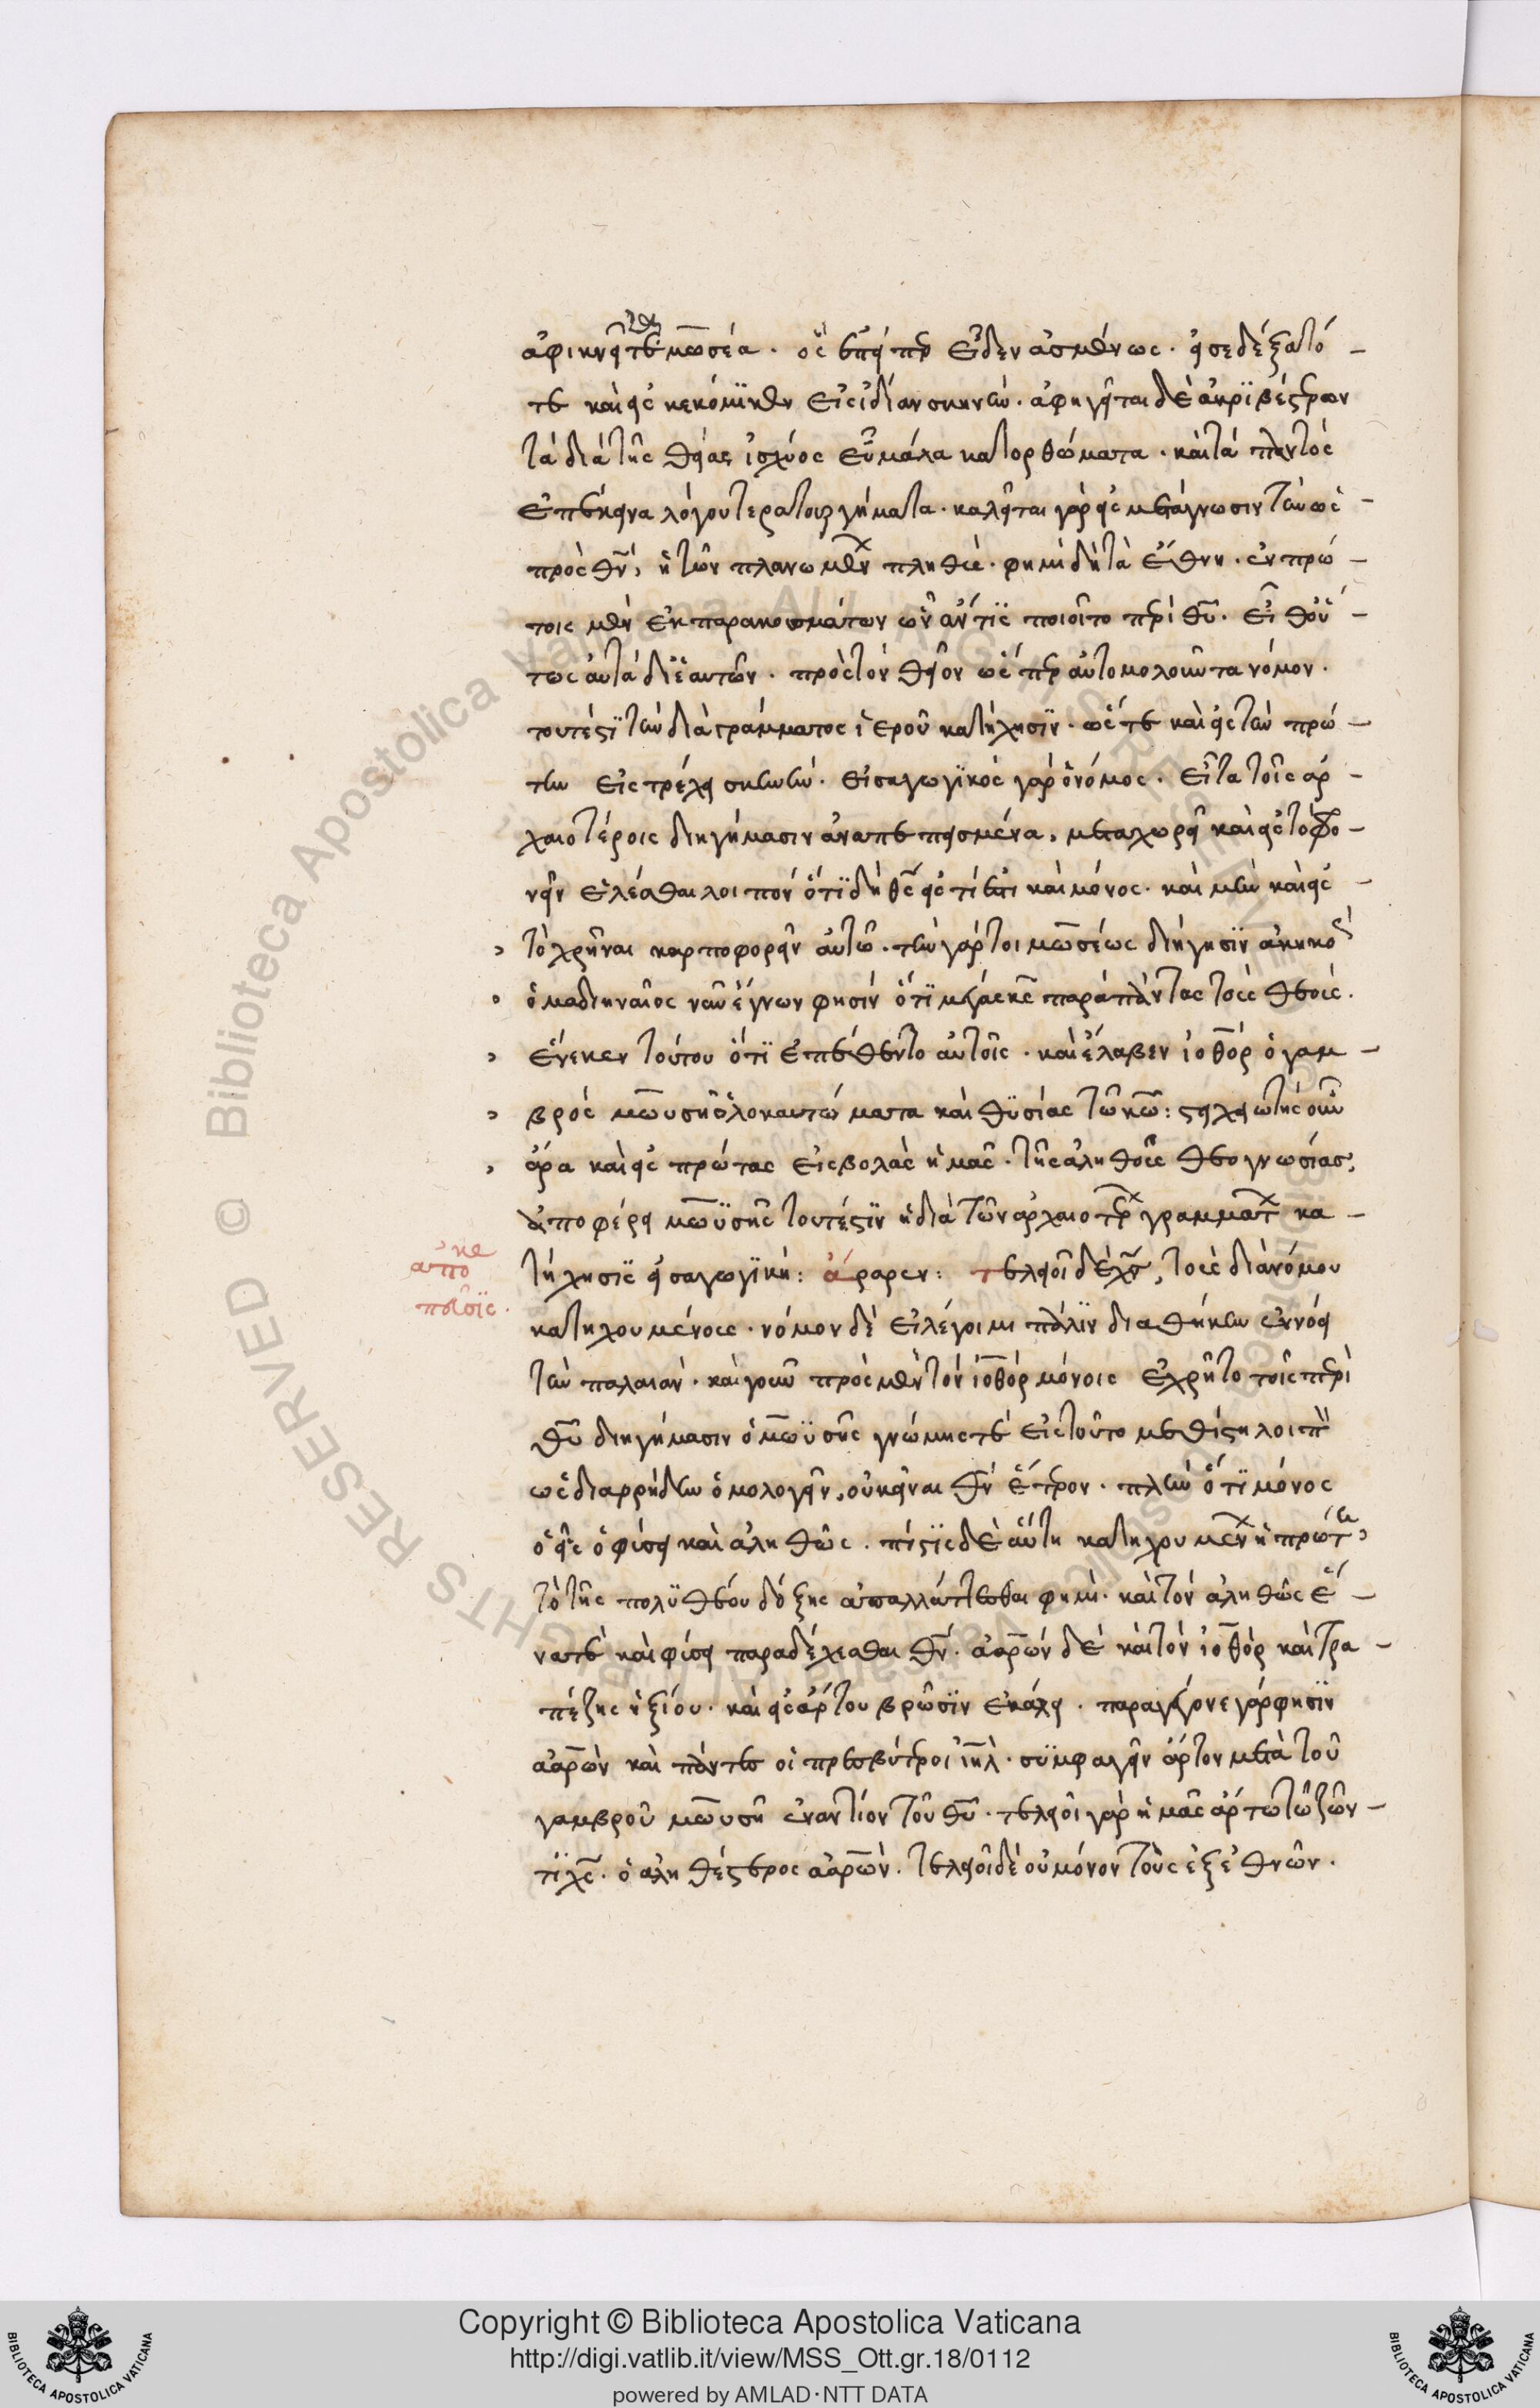 ἀφικνεῖται τε μωσέα. ὃς ἐπείπερ εἶδεν ἀσμένως. εἰσεδέξατό
τε καὶ εἰσκεκόμικεν εἰς ἰδίαν σκηνὴν. ἀφηγεῖται δὲ ἀκριβέστερον
τὰ διὰ τῆς θείας ἰσχύος εὖ μάλα κατορθώματα. καὶ τὰ παντὸς
ἐπέκεινα λόγου τερατουργήματα. καλεῖται γὰρ εἰς μετάγνωσιν τὴν ὡς
πρὸς θν, ἡ τῶν πλανωμένων πληθὺς. φημὶ δὴ τὰ ἔθνη. ἐν πρώ
τοις μὲν ἐκ παρακοσμάτων ὧν ἄν τις ποιοῖτο περὶ θυ. εἶθ οὕ
τως αὐτὰ δι ἑαυτῶν. πρὸς τὸν θεῖον ὥσπερ αὐτομολοῦντα νόμον.
τουτέστι τὴν διὰ γράμματος ἱεροῦ κατήχησιν. ὥστε καὶ εἰς τὴν πρώ
την εἰστρέχει σκηνὴν. εἰσαγωγικὸς γὰρ ὁ νόμος. εἶτα τοῖς ἀρ
χαιοτέροις διηγήμασιν ἀναπεπεισμένα, μεταχωρεῖ καὶ εἰς τὸ φρο
νεῖν ἑλέσθαι λοιπὸν ὅτι δὴ θς εἷς τέ ἐστι καὶ μόνος. καὶ μὴν καὶ εἰς
τὸ χρῆναι καρποφορεῖν αὐτῶ. τὴν γάρ τοι μωσέως διήγησιν ἀκηκοὼς
ὁ μαδιηναῖος νῦν ἔγνων φησὶν ὅτι μέγας κς παρὰ πάντας τοὺς θεούς.
ἕνεκεν τούτου ὅτι ἐπέθεντο αὐτοῖς. καὶ ἔλαβεν ἰοθὸρ ὁ γαμ
βρὸς μωυσῆ ὁλοκαυτώματα καὶ θυσίας τῶ κω: στειχειώτης οὖν
ἄρα καὶ εἰς πρώτας εἰσβολὰς ἡμᾶς. τῆς ἀληθοῦς θεογνωσίας,
ἀποφέρει μωϋσῆς τουτέστιν ἡ διὰ τῶν ἀρχαιοτέρων γραμμάτων κα
τήχησις εἰσαγωγικὴ: ἄραρεν: τελειοῖ δὲ χς, τοὺς διὰ νόμου
κατηχουμένους. νόμον δὲ εἰ λέγοιμι πάλιν διαθήκην ἐννόει
τὴν παλαιάν. καὶ γοῦν πρὸς μὲν τὸν ἰοθὸρ μόνοις ἐχρῆτο τοῖς περὶ
θυ διηγήμασιν ὁ μωϋσῆς γνώμης τέ εἰς τοῦτο μεθίστη λοιπὸν
ὡς διαρρήδην ὁμολογεῖν, οὐκ εἶναι θν ἕτερον. πλὴν ὅτι μόνος
ὁ εἷς ὁ φύσει καὶ ἀληθῶς. πίστις δὲ αὕτη κατηχουμένων ἡ πρώτη,
τὸ τῆς πολυθέου δόξης ἀπαλλάττεσθαι φημὶ. καὶ τὸν ἀληθῶς ἕ
να τε καὶ φύσει παραδέχεσθαι θν. ἀαρὼν δὲ καὶ τὸν ἰοθὸρ καὶ τρα
πέζης ἠξίου. καὶ εἰς ἄρτου βρῶσιν ἐκάλει. παραγέγονε γάρ φησιν
ἀαρὼν καὶ πάντες οἱ πρεσβύτεροι ιηλ. συμφαγεῖν ἄρτον μετὰ τοῦ
γαμβροῦ μωυσῆ ἐναντίον τοῦ θυ. τελειοῖ γὰρ ἡμᾶς ἄρτω τῶ ζῶν
τι χς. ὁ ἀληθέστερος ἀαρὼν. τελειοῖ δὲ οὐ μόνον τοὺς ἐξ ἐθνῶν.
Copyright © Biblioteca Apostolica Vaticana
http://digi.vatlib.it/view/MSS_Ott.gr.18/0112
powered by AMLAD·NTT DATA